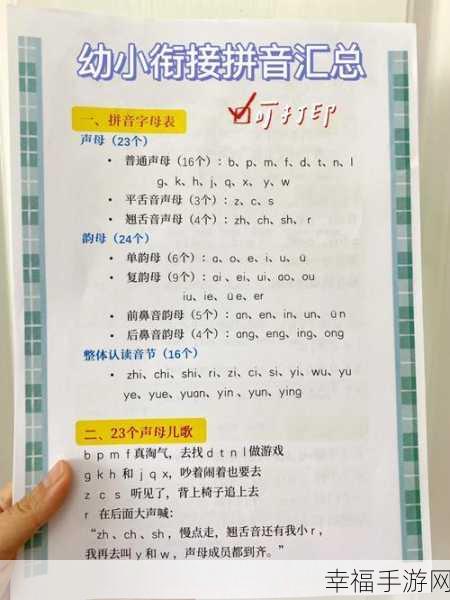 幼小衔接拼音汇总
可打印
一、拼音字母表
声母（23个）
• 普通声母（16个）：b、p、m、f、d、t、n、l
g、k、h、j、q、x、y、w
• 平舌音声母（3个）：z、c、s
• 翘舌音声母（4个）：zh、ch、sh、r
韵母（24个）
• 单韵母（6个）：a、o、e、i、u、ü
• 复韵母（9个）：ai 、ei、ui、ao、ou
iu、ie、üe、er
• 前鼻音韵母（5个）：an、en、in、un、ün
• 后鼻音韵母（4个）：ang、eng、ing、ong
整体认读音节（16个）
• zhi、chi、shi、ri、zi、ci、si、yi、wu、yu
ye、yue、yuan、yin 、yun、ying
二、23个声母儿歌
b p m f 真淘气，去找 d t n l 做游戏
g k h 和 j q x，吵着闹着也要去
z c s 听见了，背上椅子追上去
r 在后面大声喊：
“zh、ch、sh，慢点走，翘舌音还有我小 r，
我再去叫 y 和 w，声母成员都到齐。”
幸福手游网